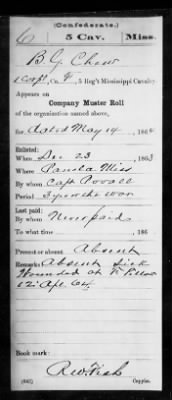 (Confederate.)
6 5 Cav. Miss.
B. G. Chew
Capt, Co. F, 5 Reg't Mississippi Cavalry.
Appears on
Company Muster Roll
of the organization named above,
for dated May 14, 1864
Enlisted:
When Dec 23, 1863
Where Panola Miss
By whom Capt Povall
Period 3 yrs or the war
Last paid:
By whom Never paid
To what time , 186
Present or absent Absent
Remarks: Absent sick
Wounded at Ft Pillow
12 Apl 64
Book mark:
R. W. Fish
(642) Copyist.